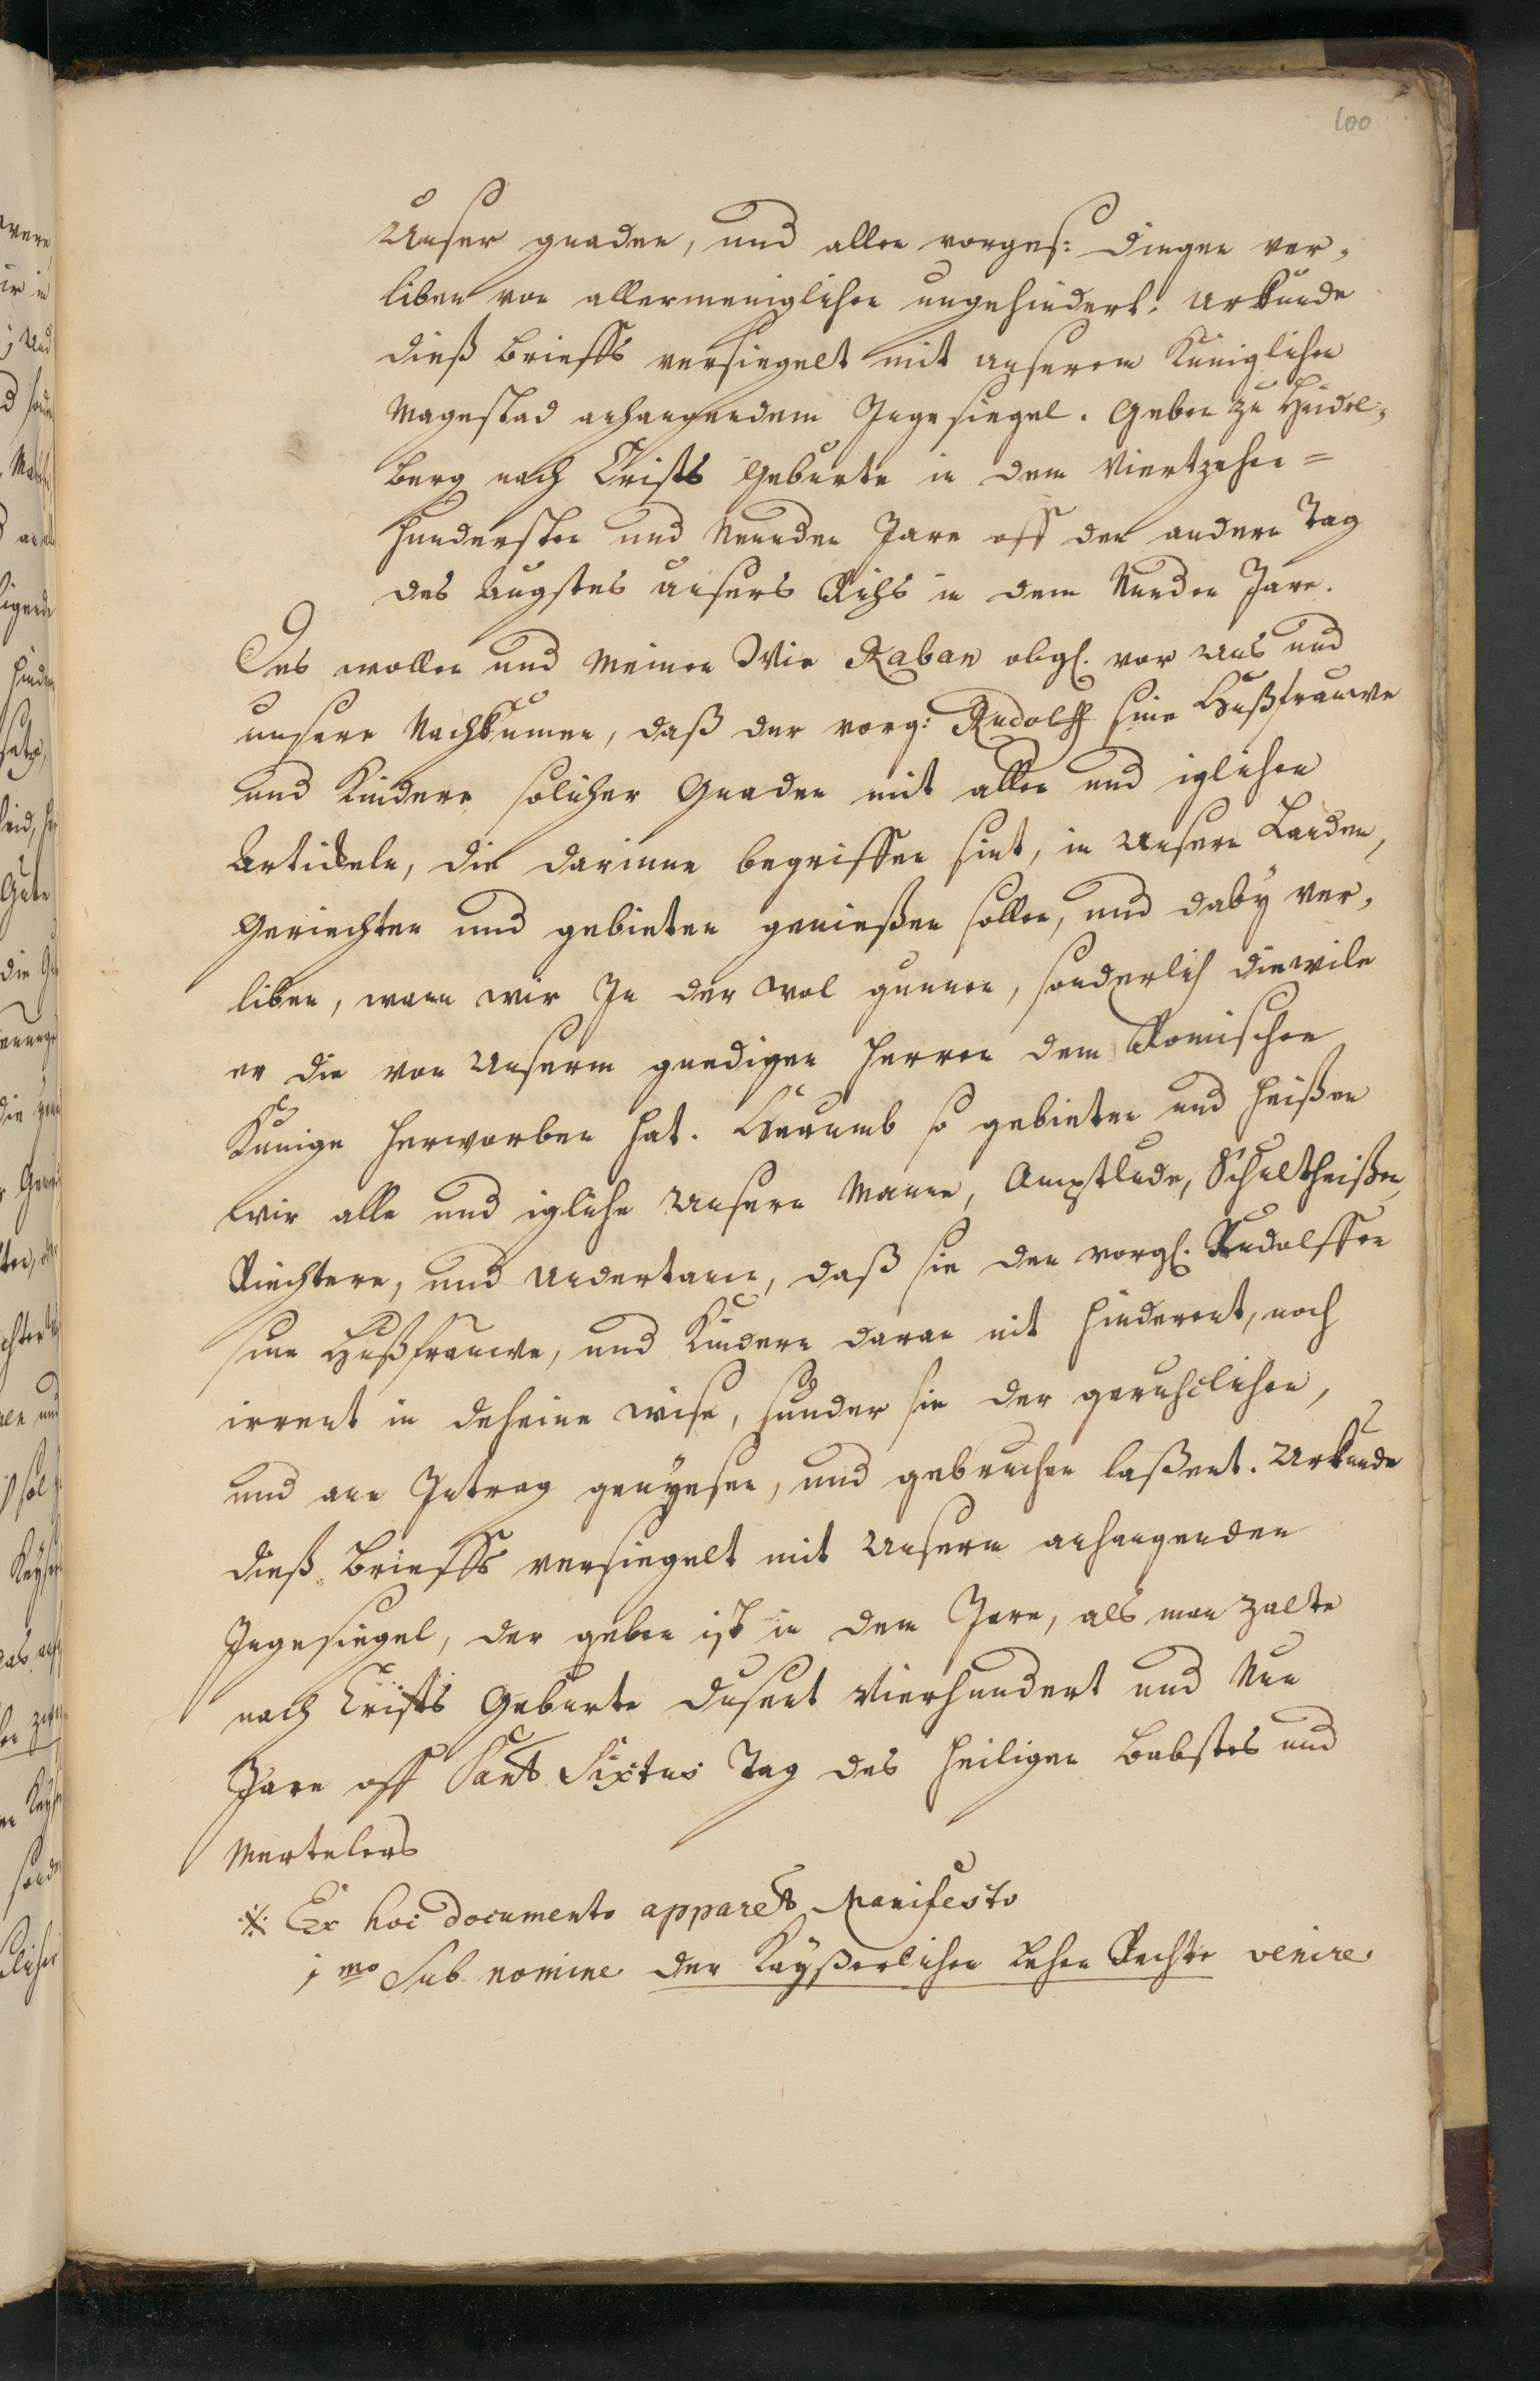 100
Unser gnaden, und allen vorges: dingen ver-
liben von allermeniglichen ungehindert. Urkunde
dieß brieffs versiegelt mit unserem Kuniglichen
Magestad anhangendem Ingesiegel. Geben zu Heidel-
berg nach Cristi Geburte in dem Viertzehen=
hundersten und Neunden Jare off den andern Tag
des Augstes unsers Richs in dem Nunden Jare.
Das wollen und meinen Wir Raban obgl. vor uns und
unsere Nachkumen, daß der vorg: Rudolff sine Hußfrauwe
und Kindere solicher Gnaden mit allen und iglichen
Artickeln, die darinne begriffen sint, in unsern Landen,
Geriechten und gebieten genießen sollen, und daby ver-
liben, wann wir In der wol gunnen, sonderlich diewile
er die von Unserm gnedigen Herren dem Romischen
Kunige herworben hat. Harumb so gebieten und heißen
wir alle und igliche unsere Manne, Amptlude, Schultheißen,
Riechtere, und Undertanen, daß sie den vorgl. Rudolffen
sine Hußfrauwe, und Kindern daran nit hinderent, noch
irrent in deheine wise, sunder sie der geruhclichen,
und ane Intrag genyesen, und gebruchen laßent. Urkunde
dieß Brieffs versiegelt mit Unserm anhangenden
Ingesiegel, der geben ist in dem Jare, als man zalte
nach Cristi Geburte dusent Vierhundert und Nun
Jare off Sant Sixtus Tag des heiligen Babstes und
Mertelers
※ Ex hoc documento apparet Manifesto
1mo Sub nomine der Kayßerlichen Lehen Rechte venire